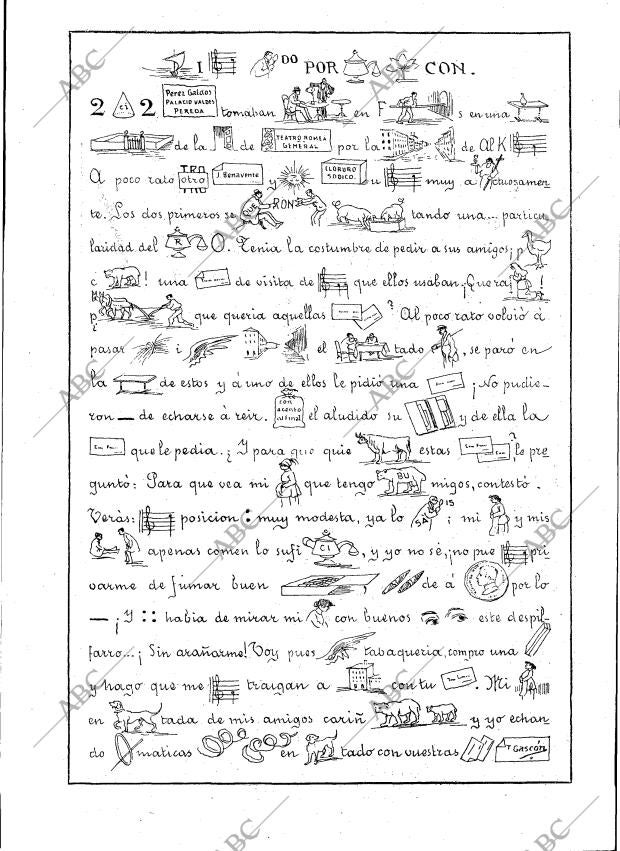 P I DO POR CON.
2 CI 2 Perez Galdos PALACIO VALDES PEREDA tomaban en F s en una
de la de TEATRO ROMEA GENERAL por la de Al K
A poco rato otro TRO J. Benavente y CLORURO SODICO. u muy a ctuosamen-
te. Los dos primeros se QUE RON tando una... particu
laridad del R O. Tenia la costumbre de pedir a sus amigos; p
c ! una de visita de que ellos usaban. ¡Quera !
p i que queria aquellas ? Al poco rato volvió á
pasar i el tado , se paró en
la de estos y á uno de ellos le pidio una ¡No pudie-
ron — de echarse á reir. con acento al final el aludido su y de ella la
que le pedia. ¿Y para que quie estas ? le pre
guntó: Para que vea mi que tengo BU migos, contestó.
Verás: posicion : muy modesta, ya lo SA IS ; mi y mis
apenas comen lo sufi CI , y yo no sé, ¡no pue pri
varme de fumar buen de á por lo
— ¡Y :: habia de mirar mi con buenos este despil-
farro...¡ Sin arañarme! Voy pues tabaqueria, compro una
y hago que me traigan a con tu . Mi
en tada de mis amigos cariñ y yo echan
do maticas en tado con vuestras T Gascón